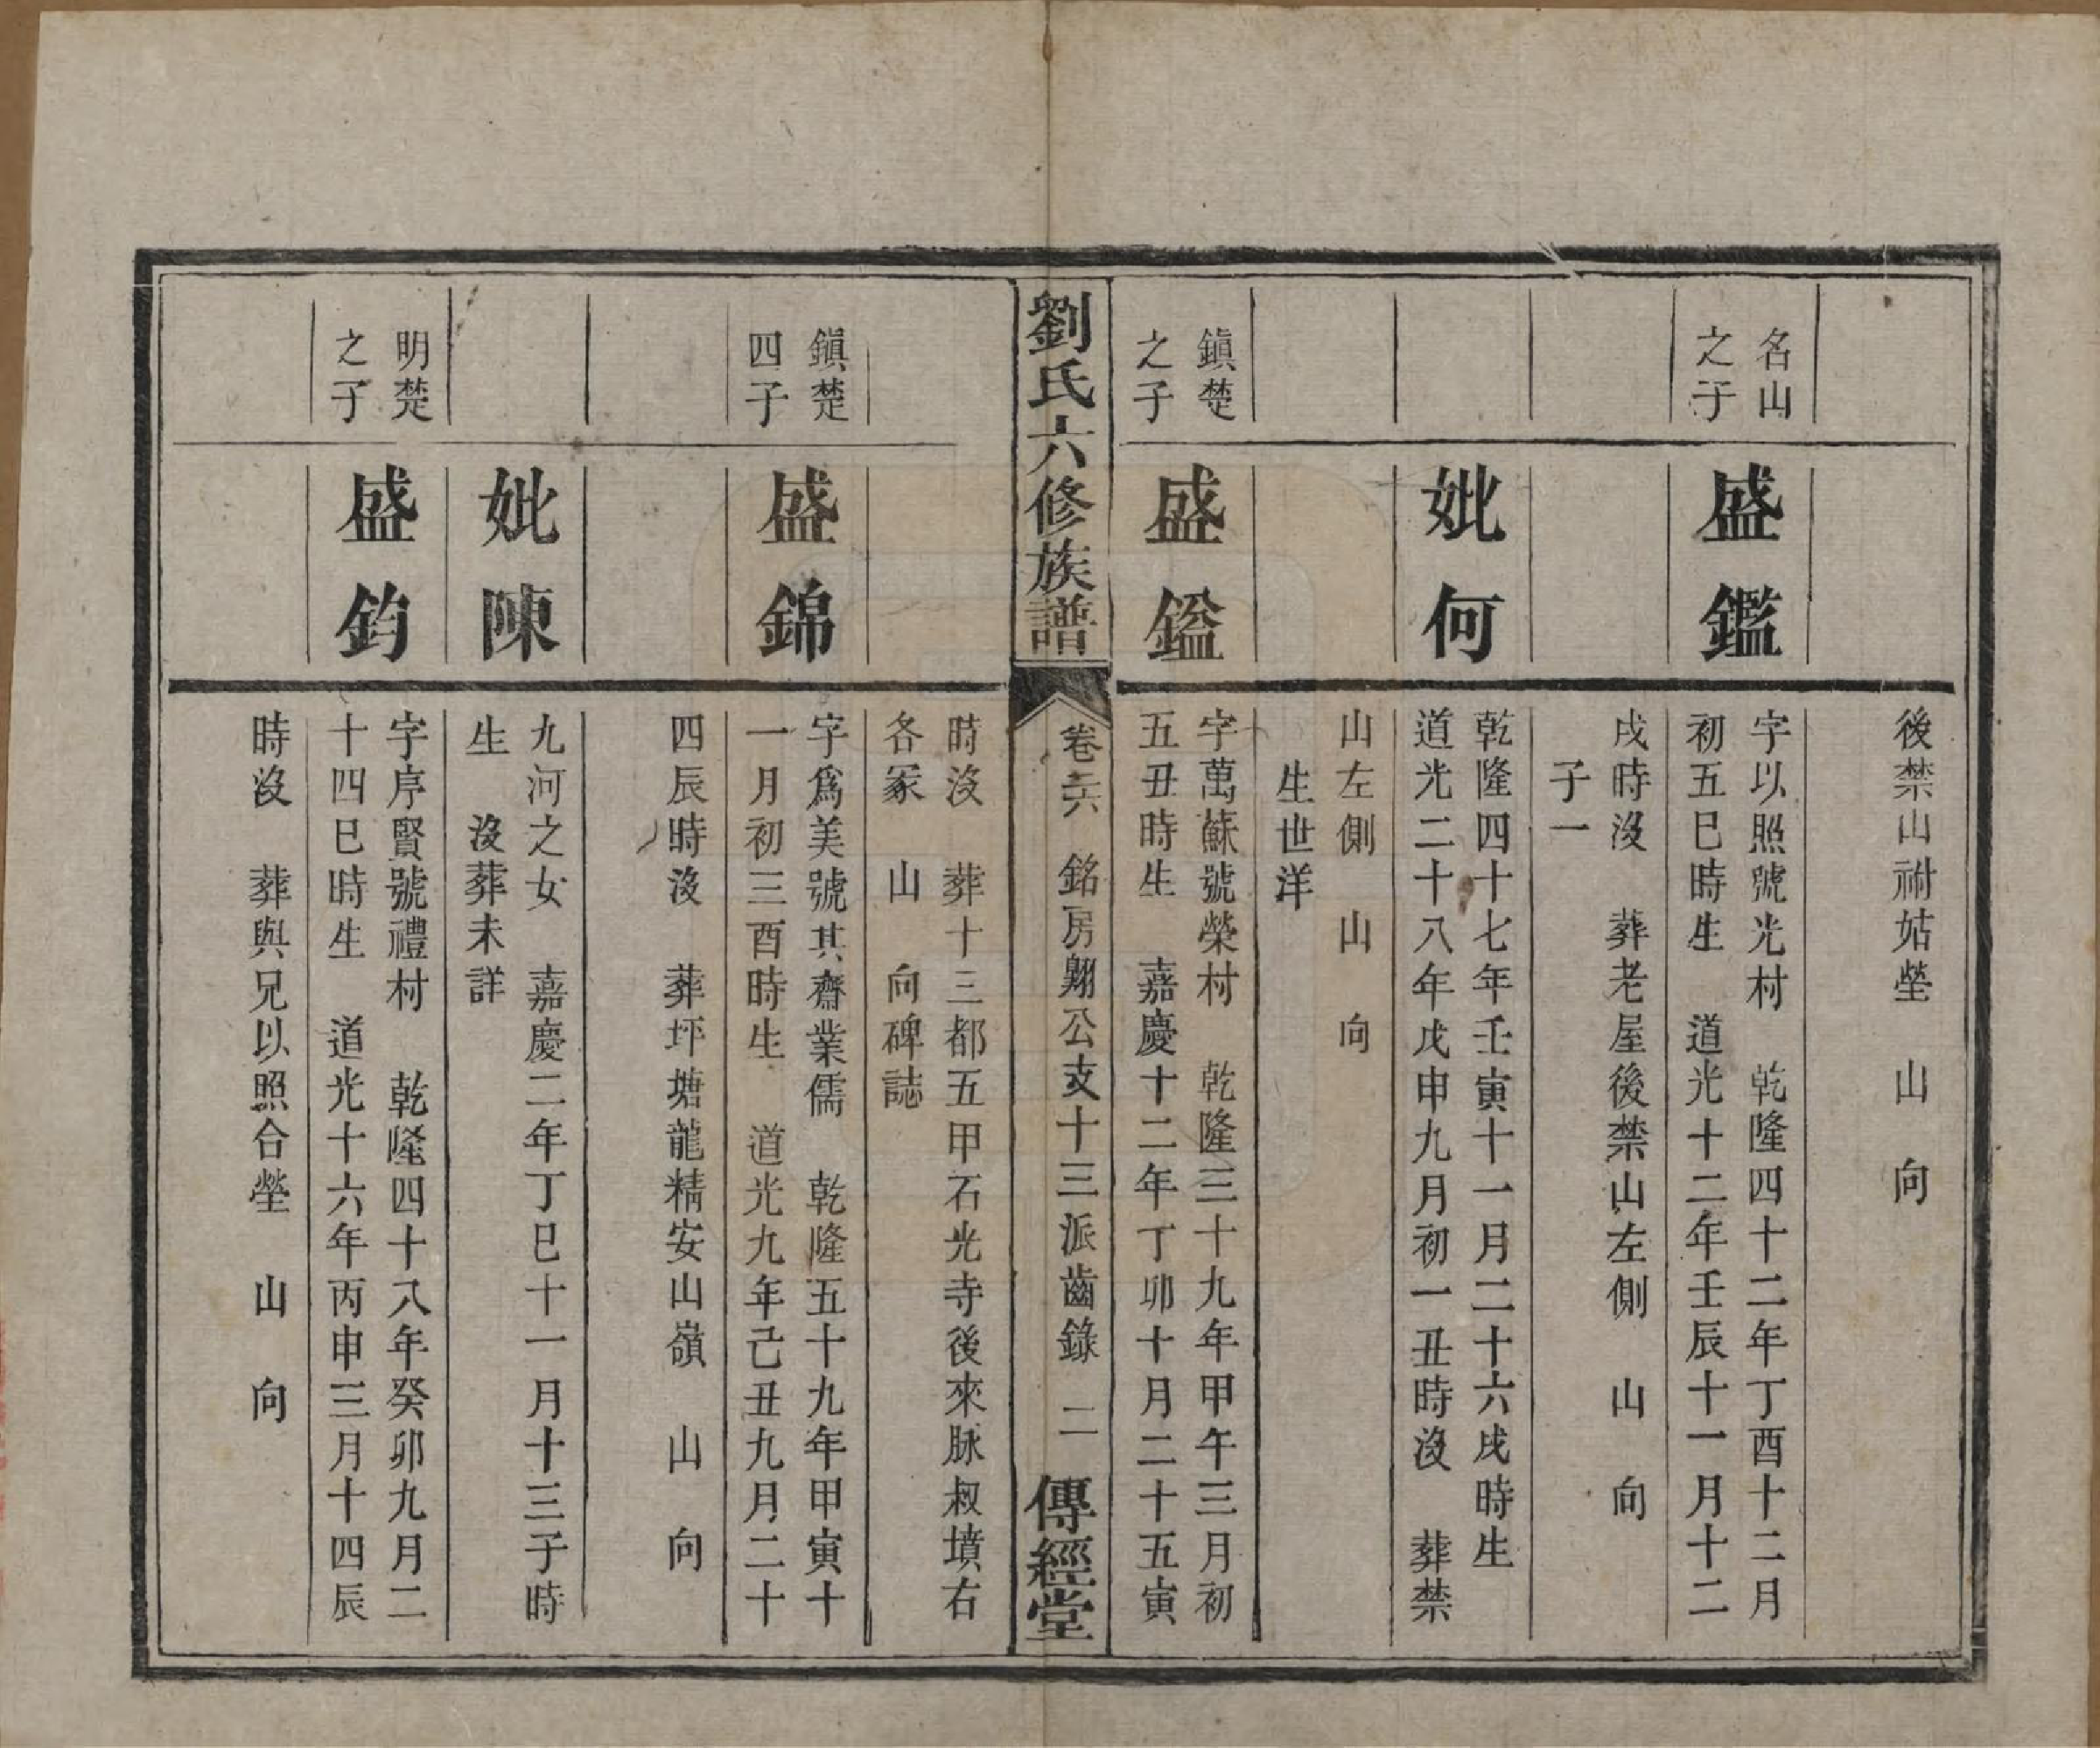 後禁山祔姑塋　山　向
名山
之子
盛鑑
字以照號光村　乾隆四十二年丁酉十二月
初五巳時生　道光十二年壬辰十一月十二
戌時沒　葬老屋後禁山左側　山　向
子一
妣何
乾隆四十七年壬寅十一月二十六戌時生
道光二十八年戊申九月初一丑時沒　葬禁
山左側　山　向
生世洋
鎮楚
之子
盛鎰
字萬蘇號榮村　乾隆三十九年甲午三月初
五丑時生　嘉慶十二年丁卯十月二十五寅
劉氏六修族譜
卷六　銘房翺公支十三派齒錄　二
傳經堂
時沒　葬十三都五甲石光寺後來脉叔墳右
各冢　山　向碑誌
鎮楚
四子
盛錦
字爲美號其齋業儒　乾隆五十九年甲寅十
一月初三酉時生　道光九年己丑九月二十
四辰時沒　葬坪塘龍精安山嶺　山　向
妣陳
九河之女　嘉慶二年丁巳十一月十三子時
生　沒葬未詳
明楚
之子
盛鈞
字序賢號禮村　乾隆四十八年癸卯九月二
十四巳時生　道光十六年丙申三月十四辰
時沒　葬與兄以照合塋　山　向